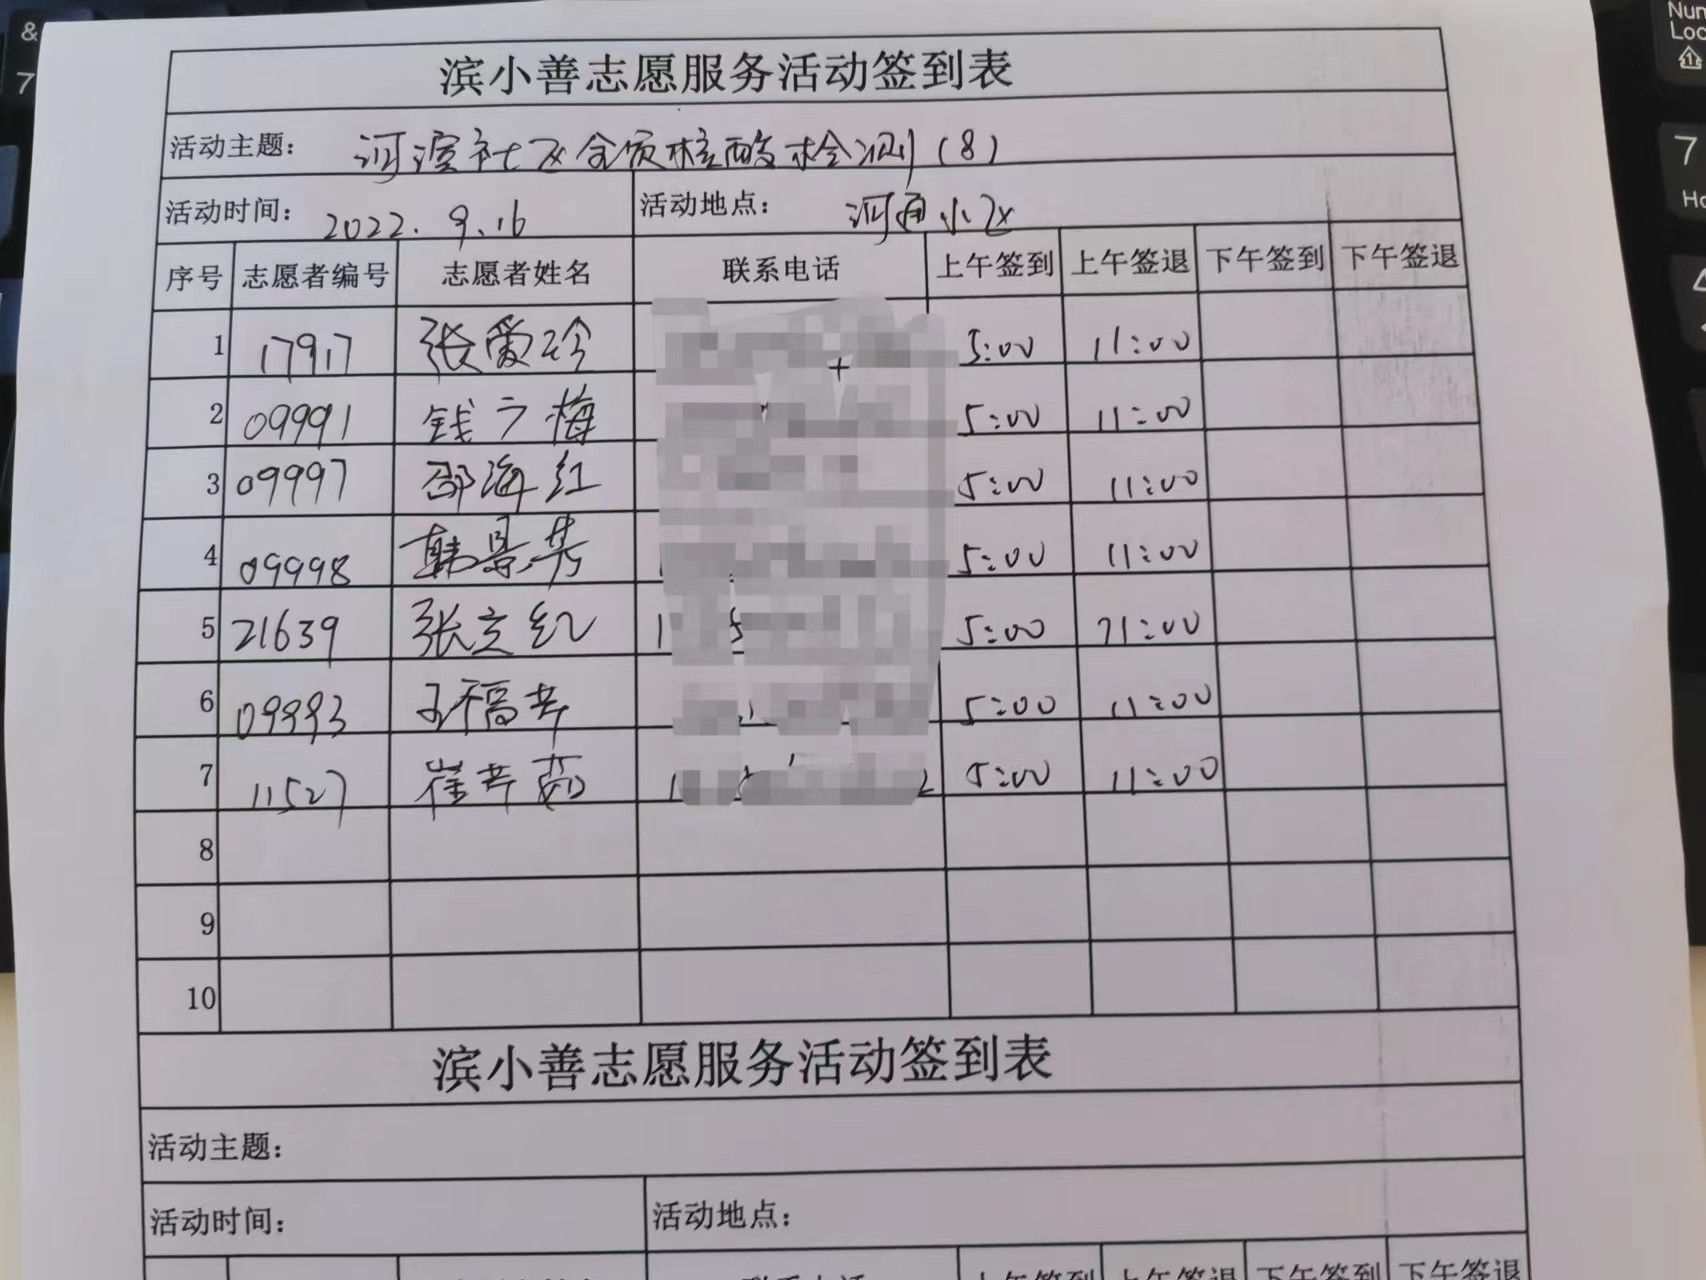 滨小善志愿服务活动签到表
活动主题： 河滨社区全员核酸检测(8)
活动时间： 2022.9.16 活动地点： 河西小区
序号 志愿者编号 志愿者姓名 联系电话 上午签到 上午签退 下午签到 下午签退
1 17917 张爱玲 5:00 11:00
2 09991 钱广梅 5:00 11:00
3 09997 邵海红 5:00 11:00
4 09998 韩景芳 5:00 11:00
5 21639 张立红 5:00 11:00
6 09993 王福芹 5:00 11:00
7 11527 崔芹茹 5:00 11:00
8
9
10
滨小善志愿服务活动签到表
活动主题：
活动时间： 活动地点：
联系电话 上午签到 上午签退 下午签到 下午签退